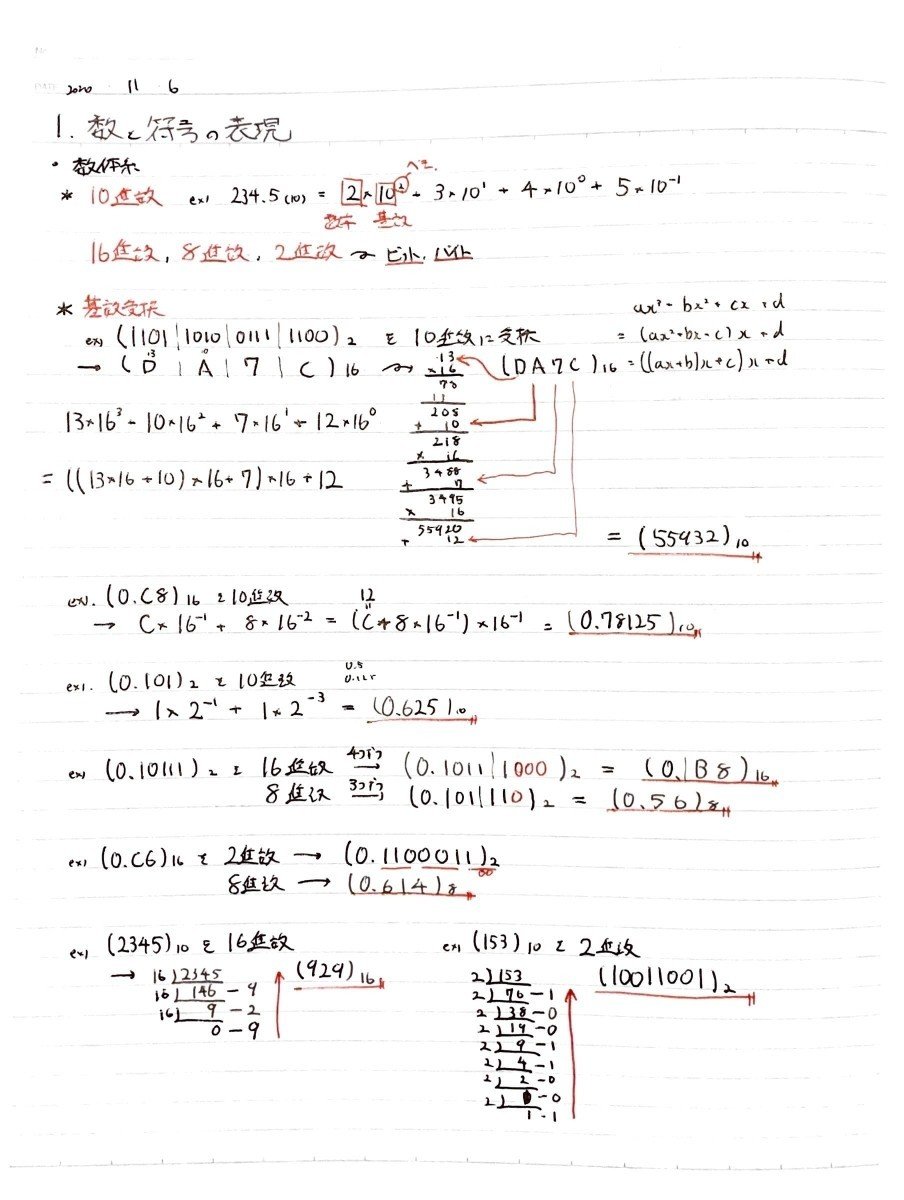 DATE 2020 ・ 11 ・ 6
1. 数と符号の表現
・ 数体系
ベキ
* 10進数 ex) 234.5(10) = 2×10² + 3×10¹ + 4×10⁰ + 5×10⁻¹
基数
16進数, 8進数, 2進数 → ビット, バイト
* 基数変換
ax³+bx²+cx+d
= (ax²+bx+c)x+d
= ((ax+b)x+c)x+d
ex) (1101|1010|0111|1100)₂ を 10進数に変換
→ (D|A|7|C)16 → (DA7C)16
13
×16
78
13
208
+ 10
218
× 16
3488
+ 7
3495
× 16
55920
+ 12
13×16³ + 10×16² + 7×16¹ + 12×16⁰
= ((13×16+10)×16+7)×16+12
= (55932)10
ex). (0.C8)16 を10進数
12
→ C×16⁻¹ + 8×16⁻² = (C+8×16⁻¹)×16⁻¹ = (0.78125)10
ex). (0.101)₂ を 10進数
0.5
0.125
→ 1×2⁻¹ + 1×2⁻³ = (0.625)10
ex) (0.10111)₂ を 16進数 4つずつ→ (0.1011|1000)₂ = (0.B8)16
8進数 3つずつ→ (0.101|110)₂ = (0.56)8
ex) (0.C6)16 を 2進数 → (0.1100011)₂
00
8進数 → (0.614)8
ex) (2345)10 を 16進数
→ 16)2345
16)146 - 9
16)9 - 2
0 - 9
(929)16
ex) (153)10 を 2進数
2)153
2)76 - 1
2)38 - 0
2)19 - 0
2)9 - 1
2)4 - 1
2)2 - 0
2) - 0
1 - 1
(10011001)₂